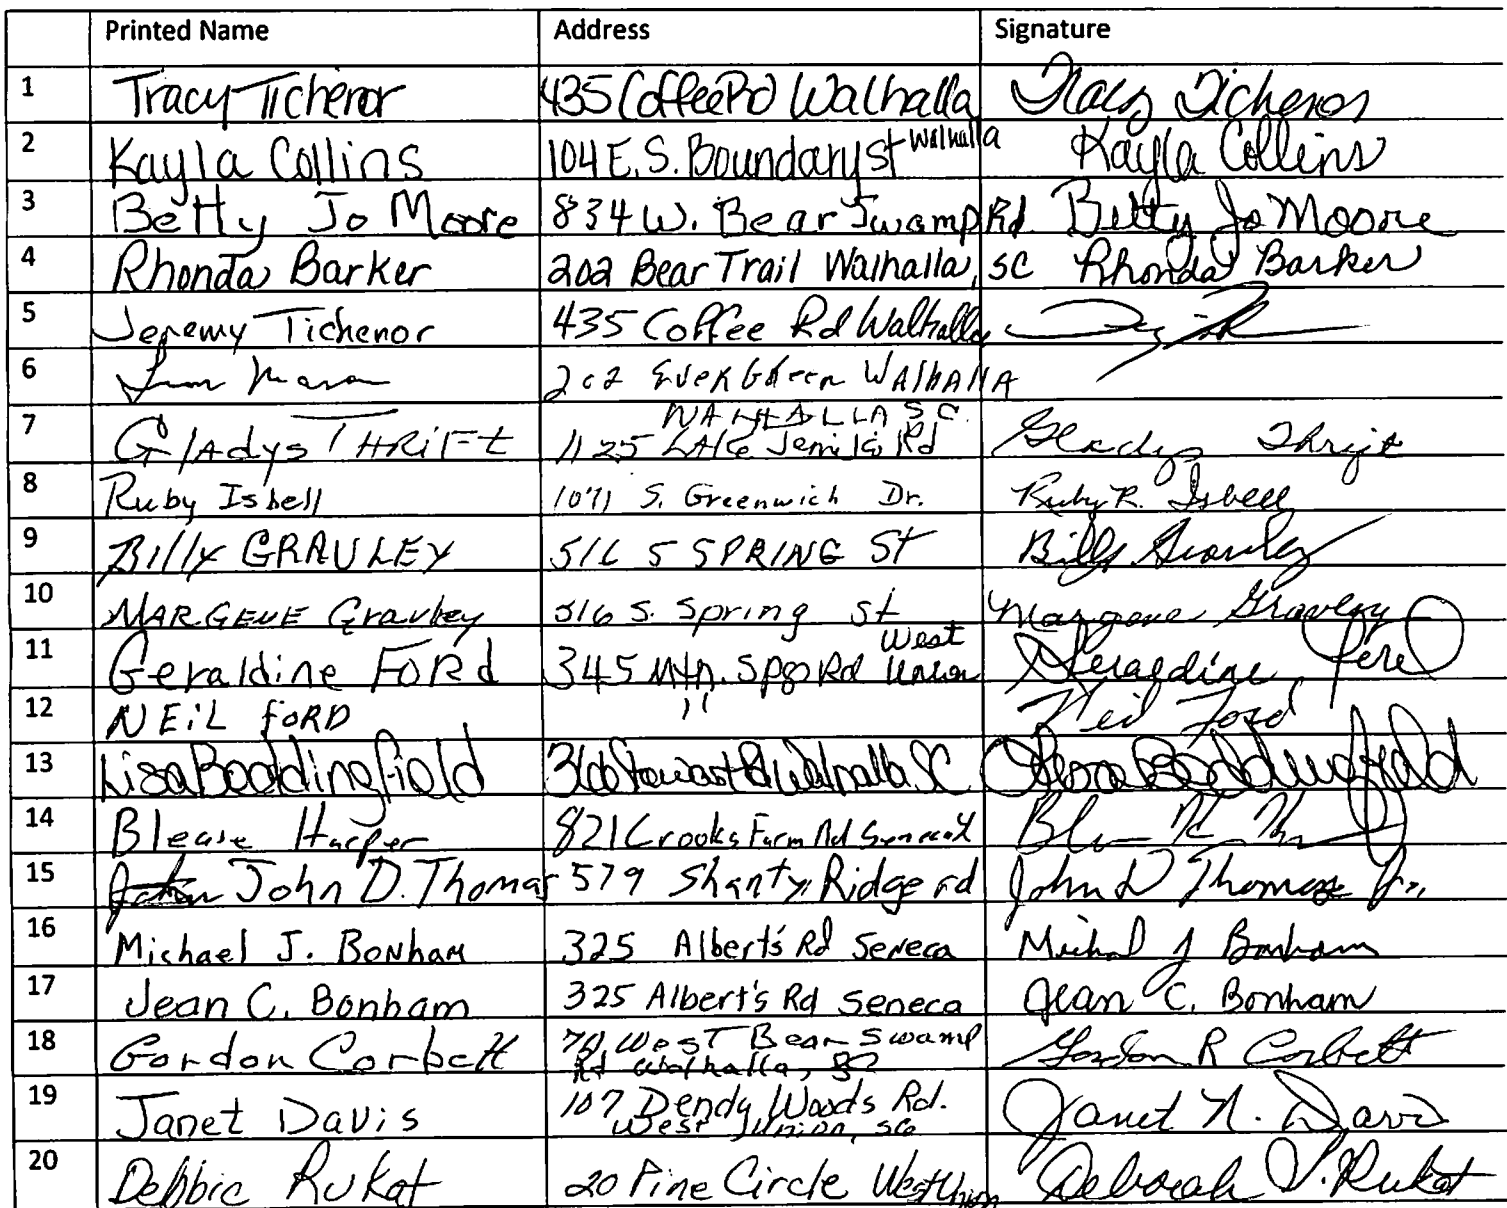 Printed Name Address Signature
1 Tracy Tichenor 435 Coffee Rd Walhalla Tracy Tichenor
2 Kayla Collins 104 E. S. Boundary St Walhalla Kayla Collins
3 Betty Jo Moore 834 W. Bear Swamp Rd Betty Jo Moore
4 Rhonda Barker 202 Bear Trail Walhalla, SC Rhonda Barker
5 Jeremy Tichenor 435 Coffee Rd Walhalla
6 202 EverGreen WAlhAllA
WALHALLA SC.
7 GlAdys THRiFt 1125 LAKe Rd Gladys Thrift
8 Ruby Isbell 1071 S. Greenwich Dr. Ruby R. Isbell
9 Billy GRAVLEY 516 S SPRING St Billy Gravley
10 MARGENE Gravley 516 S. Spring St Margene Gravley
West
11 Geraldine FORd 345 Mtn. Spgs Rd Union Geraldine Ford
12 NEiL FORD " Neil Ford
13 Lisa Boddingfield Walhalla SC
14 Blease Harper 821 Crooks Farm Rd Seneca
15 John D. Thomas 579 Shanty Ridge rd John D Thomas Jr.,
16 Michael J. Bonham 325 Albert's Rd Seneca Michael J Bonham
17 Jean C. Bonham 325 Albert's Rd Seneca Jean C. Bonham
18 Gordon Corbett West Bear Swamp Gordon R Corbett
Rd Walhalla, SC
19 Janet Davis 107 Dendy Woods Rd. Janet N. Davis
West Union, SC
20 Debbie Rukat 20 Pine Circle West Union Deborah Rukat